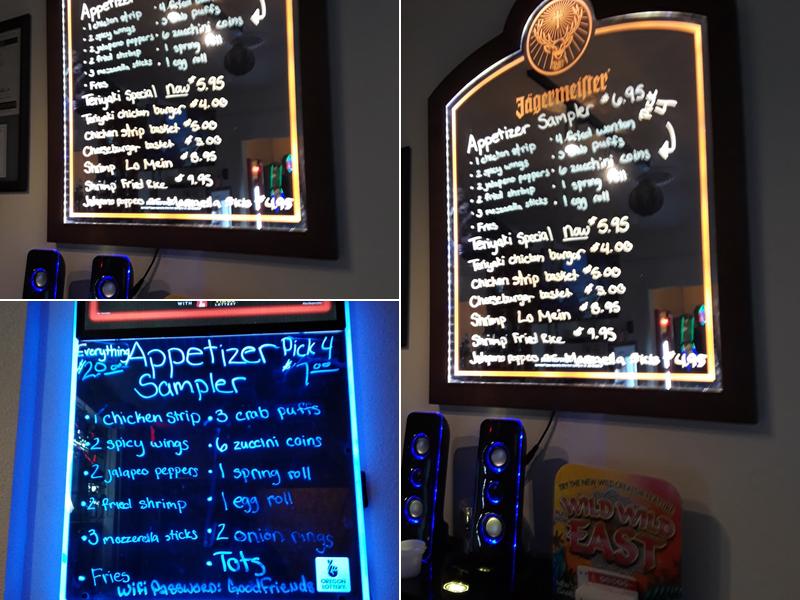 Appetizer
• 1 chicken strip
• 2 spicy wings
• 2 jalapeno poppers
• 2 fried shrimp
• 3 mozzarella sticks
• Fries
• 4 fried wonton
• 3 crab puffs
• 6 zucchini coins
• 1 spring roll
• 1 egg roll
Teriyaki Special Now $5.95
Teriyaki chicken burger $4.00
Chicken strip basket $5.00
Cheeseburger basket $3.00
Shrimp Lo Mein $8.95
Shrimp Fried Rice $9.95
Jalapeno poppers or Mozzarella Sticks $4.95
Jägermeister
Appetizer Sampler $6.95 Pick 4
• 1 chicken strip
• 2 spicy wings
• 2 jalapeno poppers
• 2 fried shrimp
• 3 mozzarella sticks
• Fries
• 4 fried wonton
• 3 crab puffs
• 6 zucchini coins
• 1 spring roll
• 1 egg roll
Teriyaki Special Now $5.95
Teriyaki chicken burger $4.00
Chicken strip basket $5.00
Cheeseburger basket $3.00
Shrimp Lo Mein $8.95
Shrimp Fried Rice $9.95
Jalapeno poppers or Mozzarella Sticks $4.95
TRY THE NEW WILD
WILD WILD
EAST
WITH LOTTERY
Everything $20.00
Appetizer Sampler
Pick 4 $7.00
• 1 chicken strip
• 2 spicy wings
• 2 jalapeo peppers
• 2 fried shrimp
• 3 mozzerella sticks
• Fries
• 3 crab puffs
• 6 zuccini coins
• 1 spring roll
• 1 egg roll
• 2 onion rings
• Tots
Wifi Password: GoodFriends
OREGON
LOTTERY